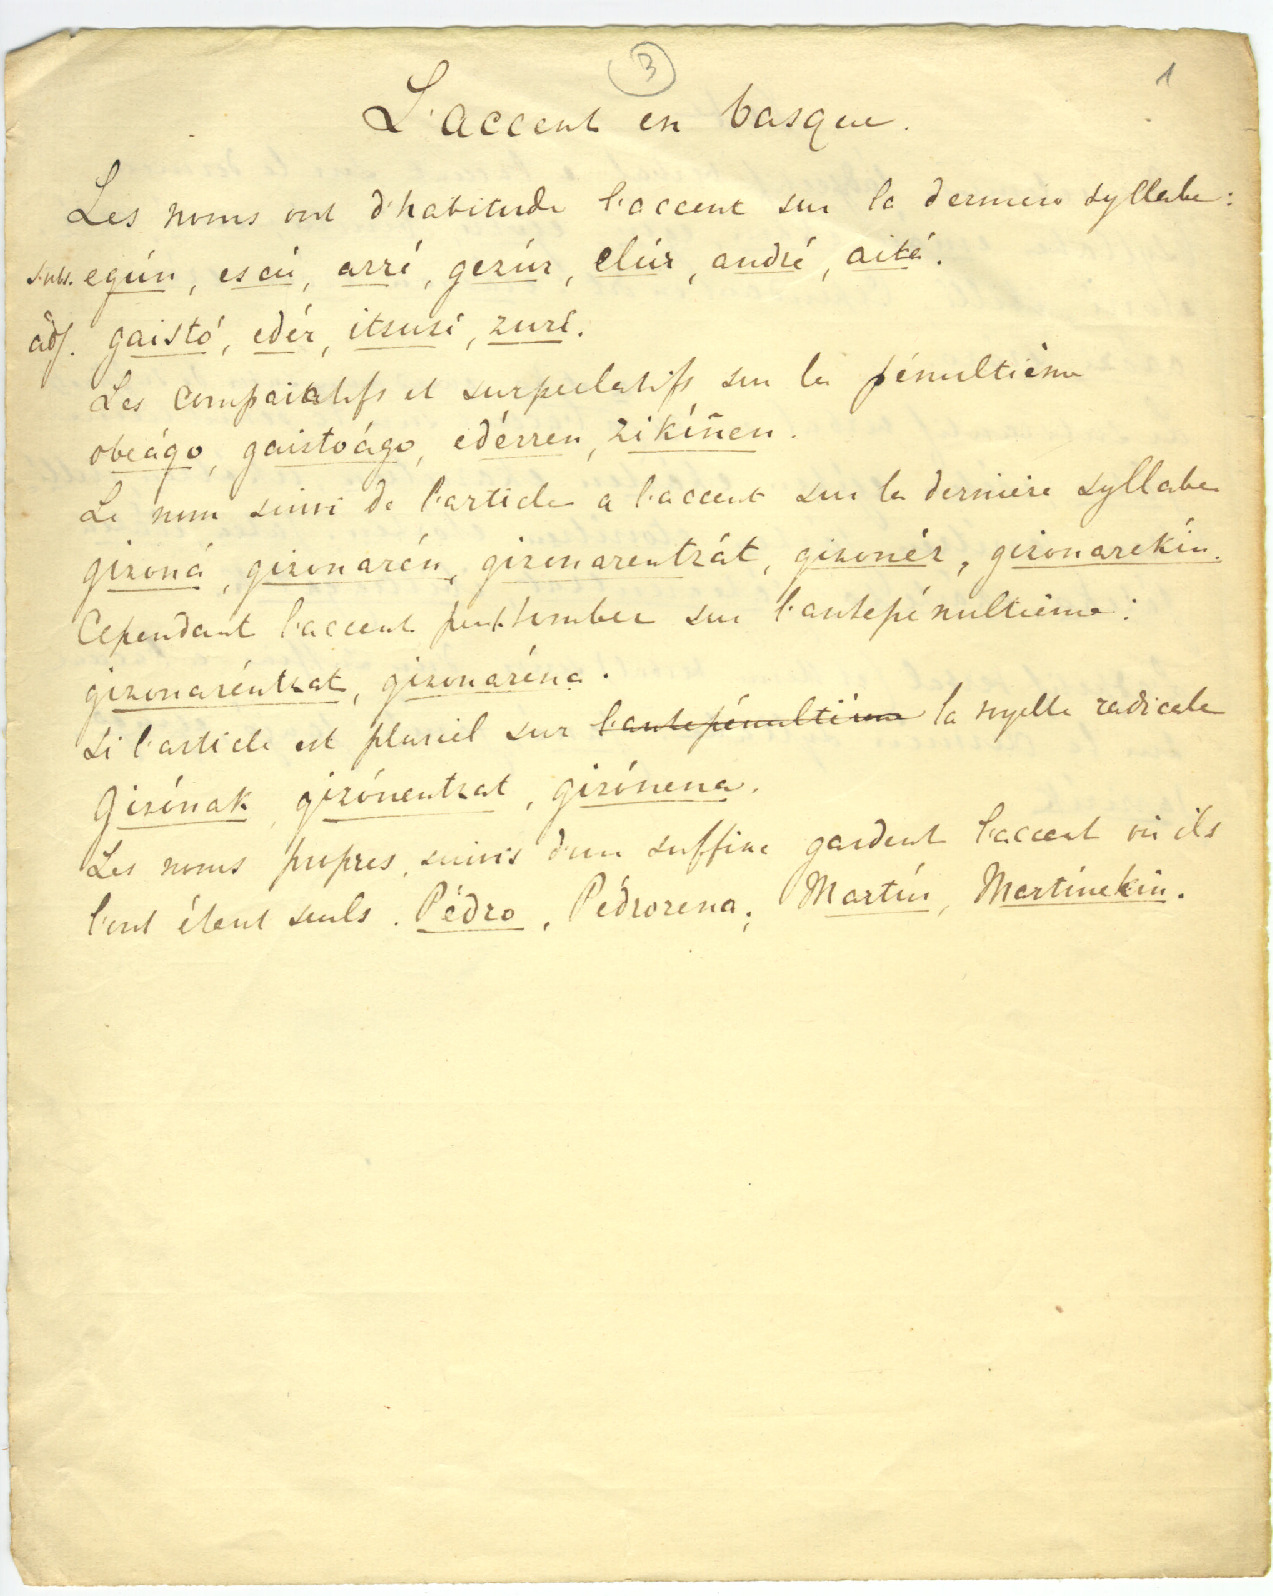 3
1
L'accent en basque.
Les noms ont d'habitude l'accent sur la dernière syllabe :
subs. egún, escú, arrí, gezúr, elúr, andré, aitá.
adj. gaistó, edér, itsusí, zurí.
Les comparatifs et surperlatifs sur la pénultième
obeágo, gaistoágo, edérren, zikíñen.
Le nom suivi de l'article a l'accent sur la dernière syllabe
gizoná, gizonarén, gizonarentzát, gizonéz, gizonarekín.
Cependant l'accent peut tomber sur l'antepénultième :
gizonaréntzat, gizonaréna.
Si l'article est pluriel sur l'antepénultième la syelle radicale
Gizónak, gizónentzat, gizónena.
Les noms propres, suivis d'un suffixe gardent l'accent où ils
l'ont étant seuls. Pédro, Pédrorena, Martín, Martínekin.